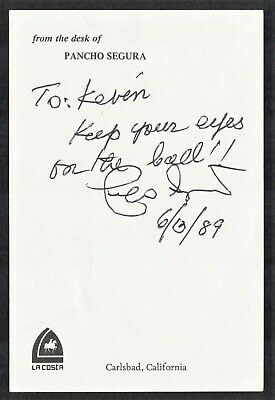 from the desk of
PANCHO SEGURA
To: Kevin
Keep your eyes
on the ball!!
6/3/89
LA COSTA
Carlsbad, California